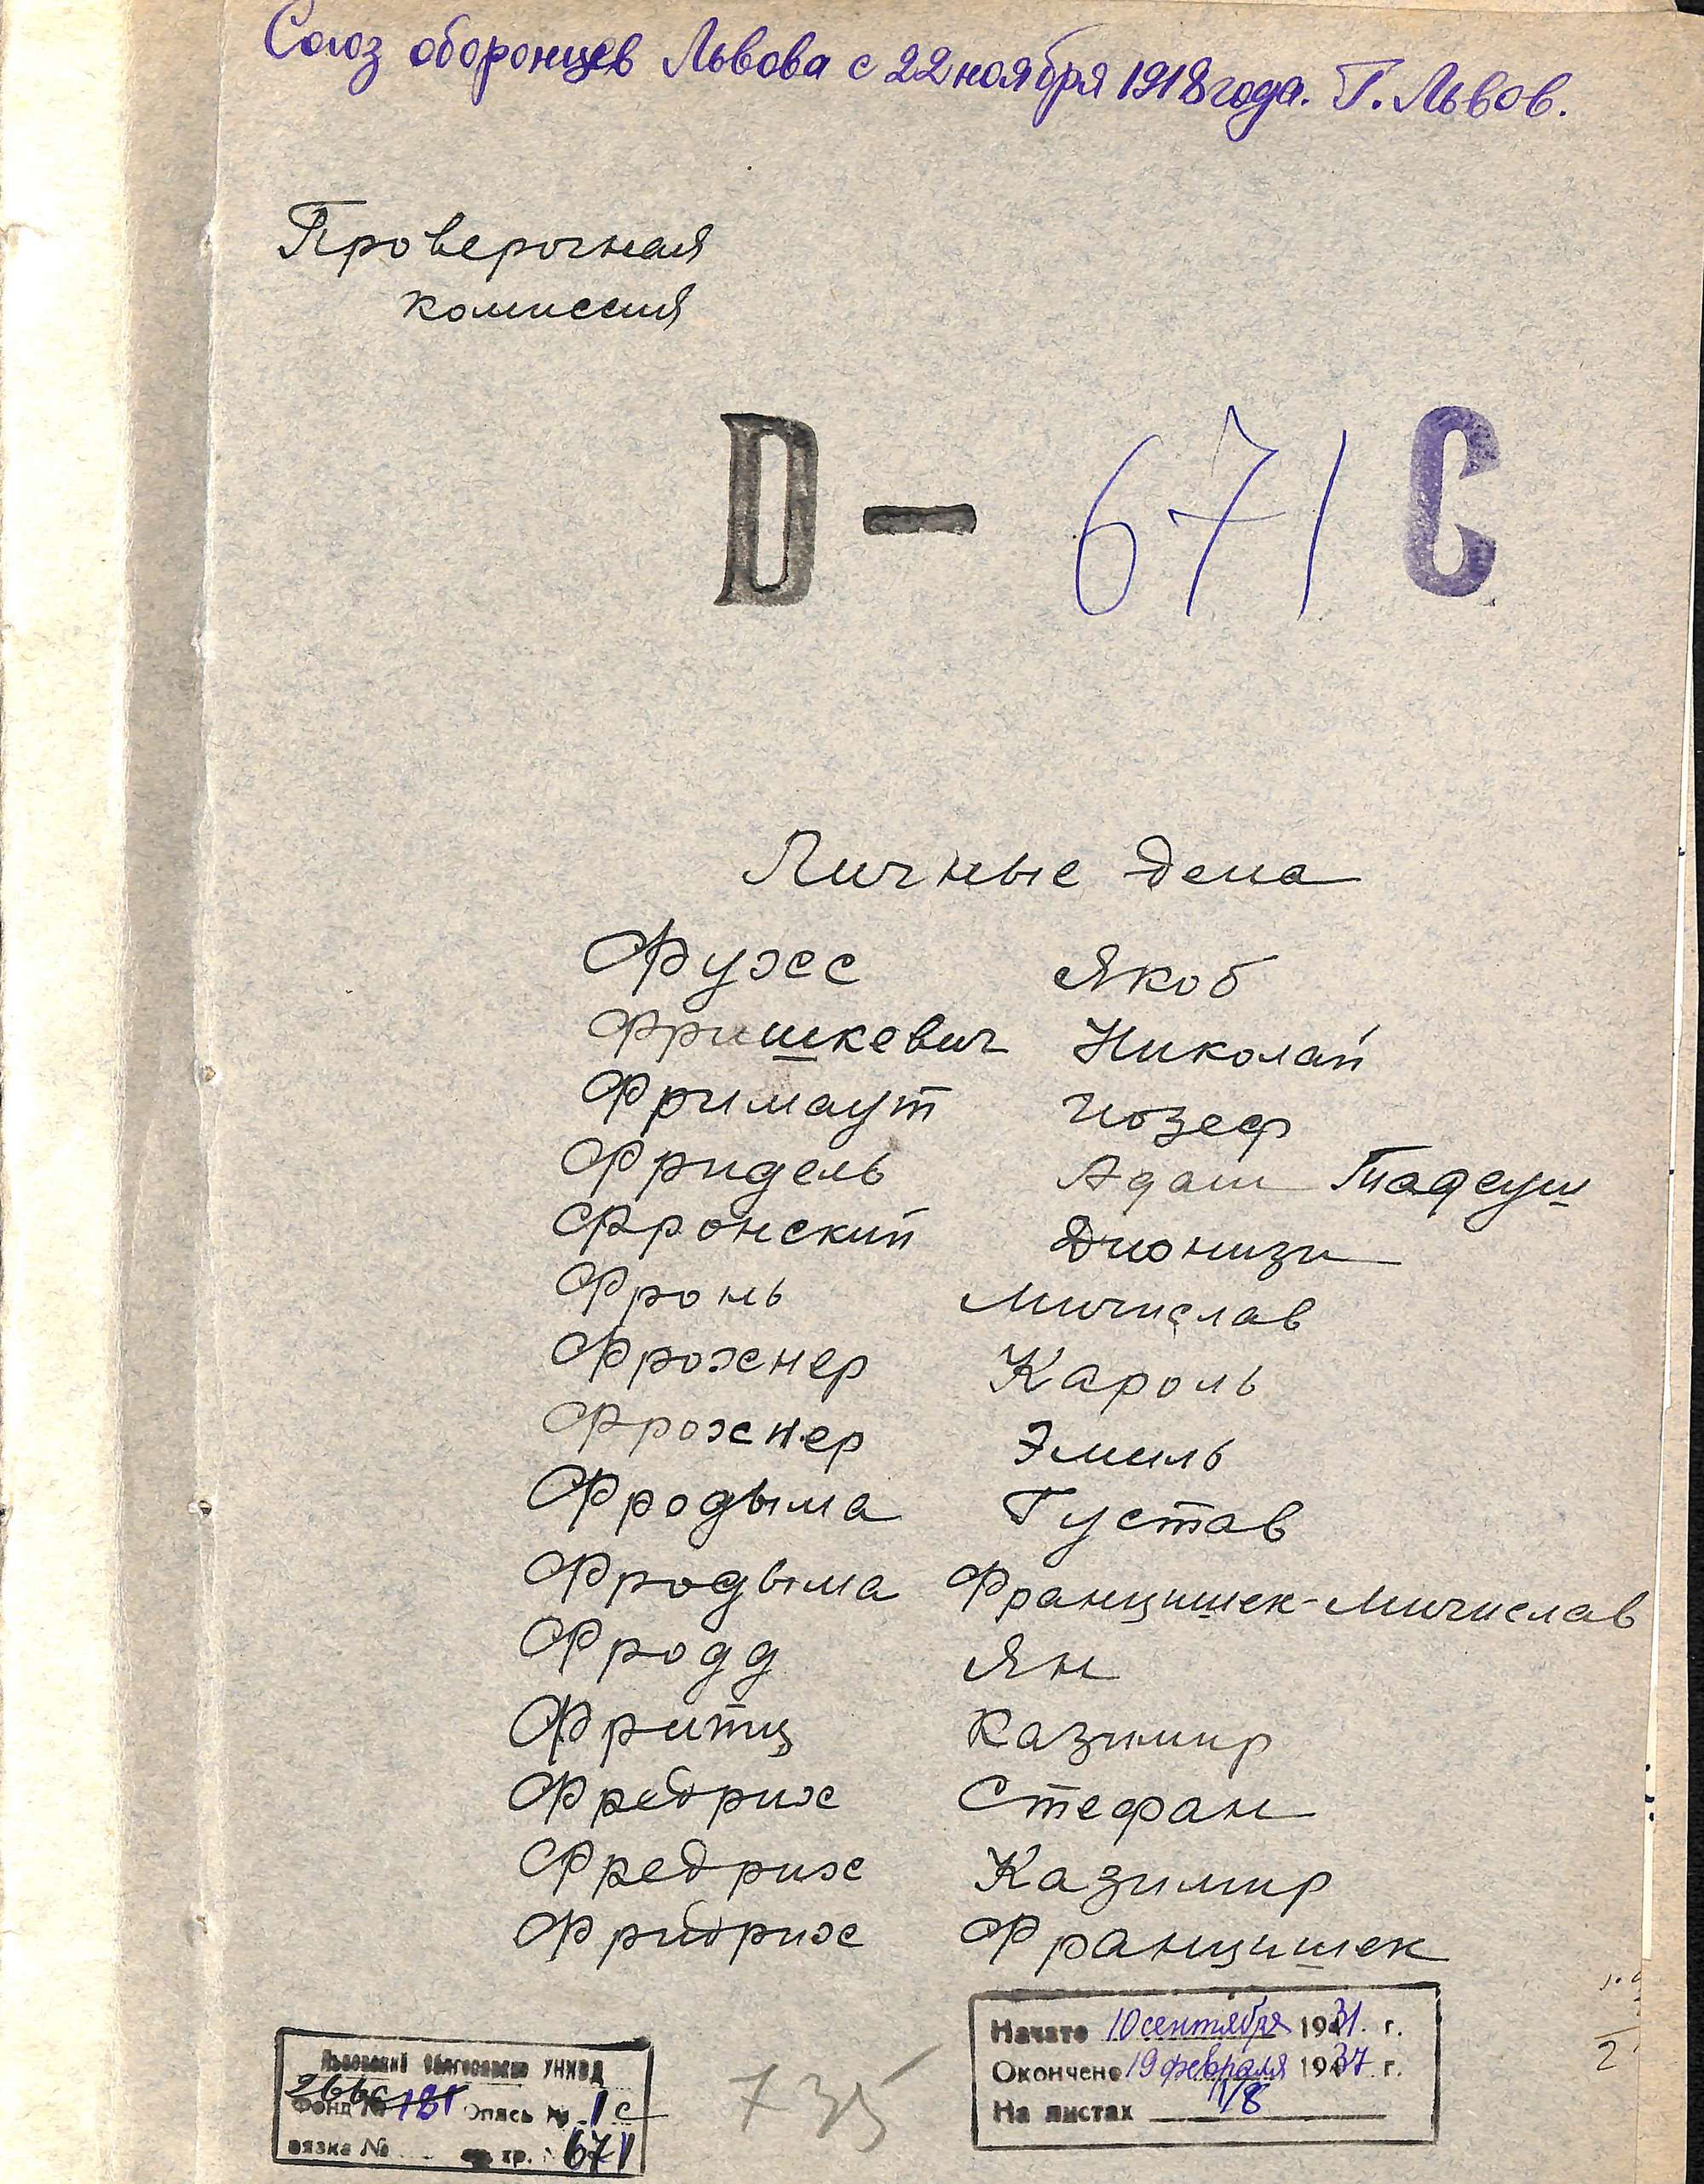 Союз оборонцев Львова с 22 ноября 1918 года. Г. Львов.
Проверочная
комиссия
D — 671 C
Личные дела
Фухс Якоб
Фришкевич Николай
Фримаут Иозеф
Фридель Адам Тадеуш
Фронский Дионизи
Фронь Мичислав
Фрохнер Кароль
Фрохнер Эмиль
Фродыма Густав
Фродыма Францишек-Мичислав
Фродд Ян
Фритц Казимир
Фредрих Стефан
Фредрих Казимир
Фридрих Францишек
Начато 10 сентября 1931 г.
Окончено 19 февраля 1937 г.
На листах
Львовский Облгосархив УНКВД
266с
Фонд № 181 Опись № 1с
вязка № ед. хр. 671
735